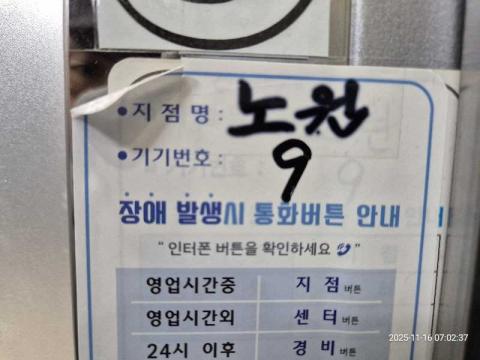 • 지점명 : 노원
• 기기번호 : 9
장애 발생시 통화버튼 안내
" 인터폰 버튼을 확인하세요 "
영업시간중 지점 버튼
영업시간외 센터 버튼
24시 이후 경비 버튼
2025-11-16 07:02:37